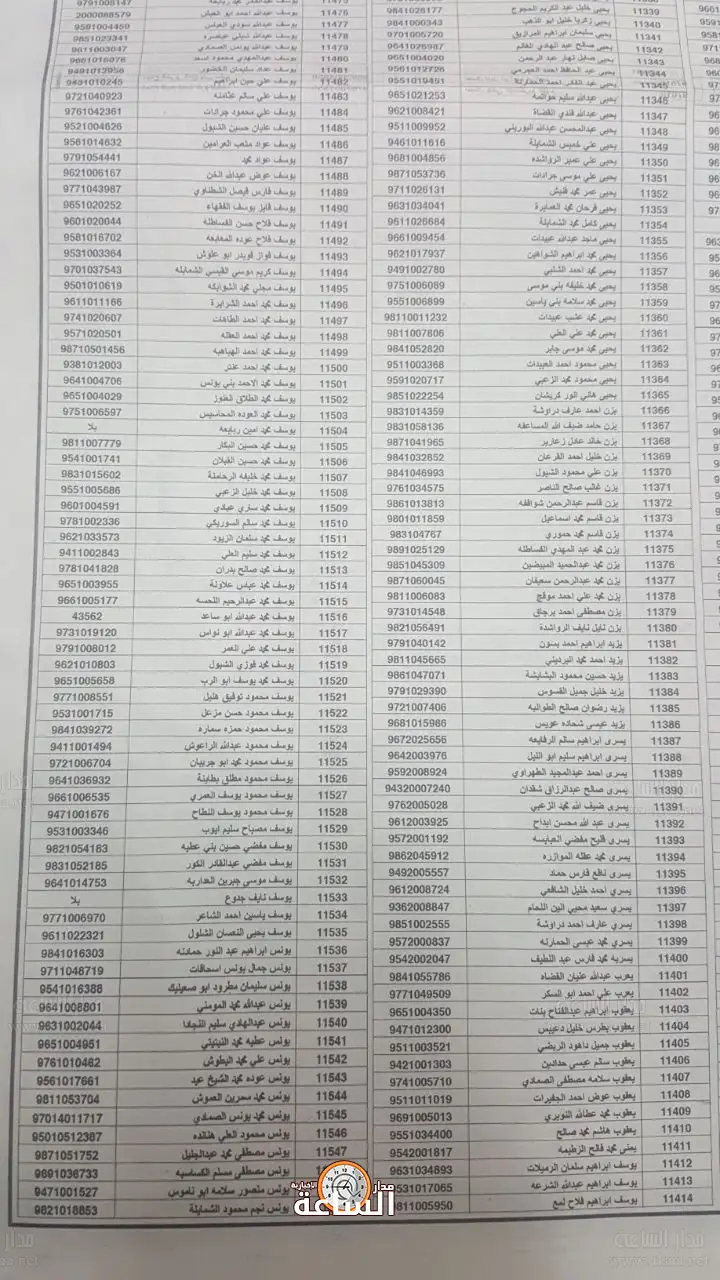 11346 يحيى عبدالله سليم حوالمه 9651021253
11347 يحيى عبدالله فندي القضاة 9621008421
11348 يحيى عبدالمحسن عبدالله البوريني 9511009952
11349 يحيى علي خميس الشمايلة 9461011616
11350 يحيى علي عمير الرواشده 9681004856
11351 يحيى علي موسى جرادات 9871053736
11352 يحيى عمر محمد قليش 9711026131
11353 يحيى فرحان محمد العمايرة 9631034041
11354 يحيى كامل محمد الشمايلة 9611026684
11355 يحيى ماجد عبدالله عبيدات 9661009454
11356 يحيى محمد ابراهيم الشواهين 9621017937
11357 يحيى محمد احمد الشلبي 9491002780
11358 يحيى محمد خليفه بني موسى 9751006089
11359 يحيى محمد سلامه بني ياسين 9551006899
11360 يحيى محمد عقب عبيدات 98110011232
11361 يحيى محمد علي العلي 9811007806
11362 يحيى محمد موسى جابر 9841052820
11363 يحيى محمود احمد العبيدات 9511003368
11364 يحيى محمود محمد الزعبي 9591020717
11365 يحيى هاني انور كريشان 9851022254
11366 يزن احمد عارف دراوشة 9831014359
11367 يزن حامد ضيف الله المساعفه 9831058136
11368 يزن خالد عادل زعارير 9871041965
11369 يزن خليل احمد القرعان 9841032852
11370 يزن علي محمود الشبول 9841046993
11371 يزن غالب صالح الناصر 9761034575
11372 يزن قاسم عبدالرحمن شواقفه 9861013813
11373 يزن قاسم محمد اسماعيل 9801011859
11374 يزن قاسم محمد حموري 983104767
11375 يزن محمد عبد المهدي القساطله 9891025129
11376 يزن محمد عبدالحميد المبيضين 9851045309
11377 يزن محمد عبدالرحمن سعيفان 9871060045
11378 يزن محمد علي احمد موقح 9811006083
11379 يزن مصطفى احمد برجاق 9731014548
11380 يزن نايل نايف الرواشدة 9821056491
11381 يزيد ابراهيم احمد بسون 9791040142
11382 يزيد احمد محمد البرديني 9811045665
11383 يزيد حسين محمود البشابشة 9861047071
11384 يزيد خليل جميل القسوس 9791029390
11385 يزيد رضوان صالح الطوالبه 9721007406
11386 يزيد عيسى شحاده عويس 9681015986
11387 يسرى ابراهيم سالم الرفايعه 9672025656
11388 يسرى ابراهيم سليم ابو الليل 9642003976
11389 يسرى احمد عبدالمجيد الطهراوي 9592008924
11390 يسرى صالح عبدالرزاق شقدان 94320007240
11391 يسرى ضيف الله محمد الزعبي 9762005028
11392 يسرى عبد الله محسن ابداح 9612003925
11393 يسرى فليح مفضي العبابسه 9572001192
11394 يسرى محمد عقله الموازره 9862045912
11395 يسرى نافع فارس حماد 9492005557
11396 يسري احمد خليل الشافعي 9612008724
11397 يسري سعيد محيي الين اللحام 9362008847
11398 يسري عارف احمد دراوشة 9851002555
11399 يسري محمد عيسى الحمارنه 9572000837
11400 يسريه محمد فارس عبد اللطيف 9542002047
11401 يعرب عبدالله عليان القضاه 9841055786
11402 يعرب علي احمد ابو السكر 9771049509
11403 يعقوب ابراهيم عبدالفتاح بنات 9651004350
11404 يعقوب بطرس خليل دعبيس 9471012300
11405 يعقوب جميل داهود الربضي 9511003521
11406 يعقوب سالم عيسى حدادين 9421001303
11407 يعقوب سلامه مصطفى الصمادي 9741005710
11408 يعقوب عوض احمد الجفيرات 9511011019
11409 يعقوب محمد عطالله النويري 9691005013
11410 يعقوب هاشم محمد صالح 9551034400
11411 يمنى محمد فالح الزطيمه 9542001817
11412 يوسف ابراهيم سلمان الرميلات 9631034893
11413 يوسف ابراهيم عبدالله الشرعه 9531017065
11414 يوسف ابراهيم فلاح لمع 9811005950
11483 يوسف علي سالم عثامنه 9721040923
11484 يوسف علي محمود جرادات 9761042361
11485 يوسف عليان حسين الشبول 9521004626
11486 يوسف عواد متعب العرامين 9561014632
11487 يوسف عواد محمد 9791054441
11488 يوسف عوض عبدالله الخن 9621006167
11489 يوسف فارس فيصل الشطناوي 9771043987
11490 يوسف فايز يوسف الفقهاء 9651020252
11491 يوسف فلاح حسن القساطله 9601020044
11492 يوسف فلاح عوده المعايعه 9581016702
11493 يوسف فواز قويدر ابو علوش 9531003364
11494 يوسف كريم موسى القيسي الشمايله 9701037543
11495 يوسف مجلي محمد الشوابكه 9501010619
11496 يوسف محمد احمد الشرايرة 9611011166
11497 يوسف محمد احمد الطاهات 9741020607
11498 يوسف محمد احمد العقله 9571020501
11499 يوسف محمد احمد الهباهبه 98710501456
11500 يوسف محمد احمد عنتر 9381012003
11501 يوسف محمد الاحمد بني يونس 9641004706
11502 يوسف محمد الطلاق العنوز 9651004029
11503 يوسف محمد العوده المحاسيس 9751006597
11504 يوسف محمد امين ربايعه بلا
11505 يوسف محمد حسين البكار 9811007779
11506 يوسف محمد حسين القيلان 9541001741
11507 يوسف محمد خليفه الرحامنة 9831015602
11508 يوسف محمد خليل الزعبي 9551005686
11509 يوسف محمد ساري عبادي 9601004591
11510 يوسف محمد سالم السوريكي 9781002336
11511 يوسف محمد سلمان الزيود 9621033573
11512 يوسف محمد سليم العلي 9411002843
11513 يوسف محمد صالح بدران 9781041828
11514 يوسف محمد عباس علاونة 9651003955
11515 يوسف محمد عبدالرحيم النحسه 9661005177
11516 يوسف محمد عبدالله ابو ساعد 43562
11517 يوسف محمد عبدالله ابو نواس 9731019120
11518 يوسف محمد علي العمر 9791008012
11519 يوسف محمد فوزي الشبول 9621010803
11520 يوسف محمد يوسف ابو الرب 9651005658
11521 يوسف محمود توفيق هليل 9771008551
11522 يوسف محمود حسن مزعل 9531001715
11523 يوسف محمود حمزه سماره 9841039272
11524 يوسف محمود عبدالله الراعوش 9411001494
11525 يوسف محمود محمد ابو جريبان 9721006704
11526 يوسف محمود مطلق بطاينة 9641036932
11527 يوسف محمود يوسف العمري 9661006535
11528 يوسف محمود يوسف النطاح 9471001676
11529 يوسف مصباح سليم ايوب 9531003346
11530 يوسف مفضي حسين بني عطيه 9821054183
11531 يوسف مفضي عبدالقادر الكور 9831052185
11532 يوسف موسى جبرين العداربه 9641014753
11533 يوسف نايف جدوع بلا
11534 يوسف ياسين احمد الشاعر 9771006970
11535 يوسف يحيى النعسان الشلول 9611022321
11536 يونس ابراهيم عبد النور حمادنه 9841016303
11537 يونس جمال يونس اسحاقات 9711048719
11538 يونس سليمان مطرود ابو صعيليك 9541016388
11539 يونس عبدالله محمد المومني 9641008801
11540 يونس عبدالهادي سليم النجادا 9631002044
11541 يونس عطيه محمد التيتيتي 9651004951
11542 يونس علي محمد البطوش 9761010462
11543 يونس عوده محمد الشيخ عيد 9561017661
11544 يونس محمد محسرين الصوش 9811053704
11545 يونس محمد يونس الصمادي 97014011717
11546 يونس محمود العلي هنانده 95010512387
11547 يونس مصطفى محمد عبدالجليل 9871051752
يونس مصطفى مسلم الكساسبه 9691036733
يونس منصور سلامه ابو ناموس 9471001527
يونس نجم محمود الشمايلة 9821018853
مدار الساعة الاخبارية